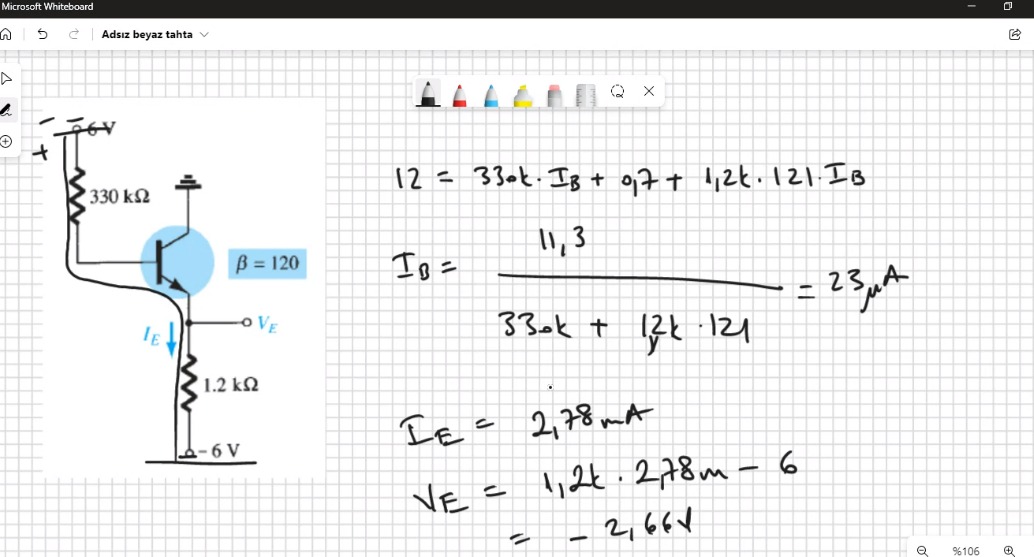 Microsoft Whiteboard
Adsız beyaz tahta
6 V
+
330 kΩ
β = 120
V_E
I_E
1.2 kΩ
- 6 V
12 = 330k · I_B + 0,7 + 1,2k · 121 · I_B
11,3
I_B = = 23 μA
330k + 1,2k · 121
I_E = 2,78 mA
V_E = 1,2k · 2,78m - 6
= - 2,66V
%106